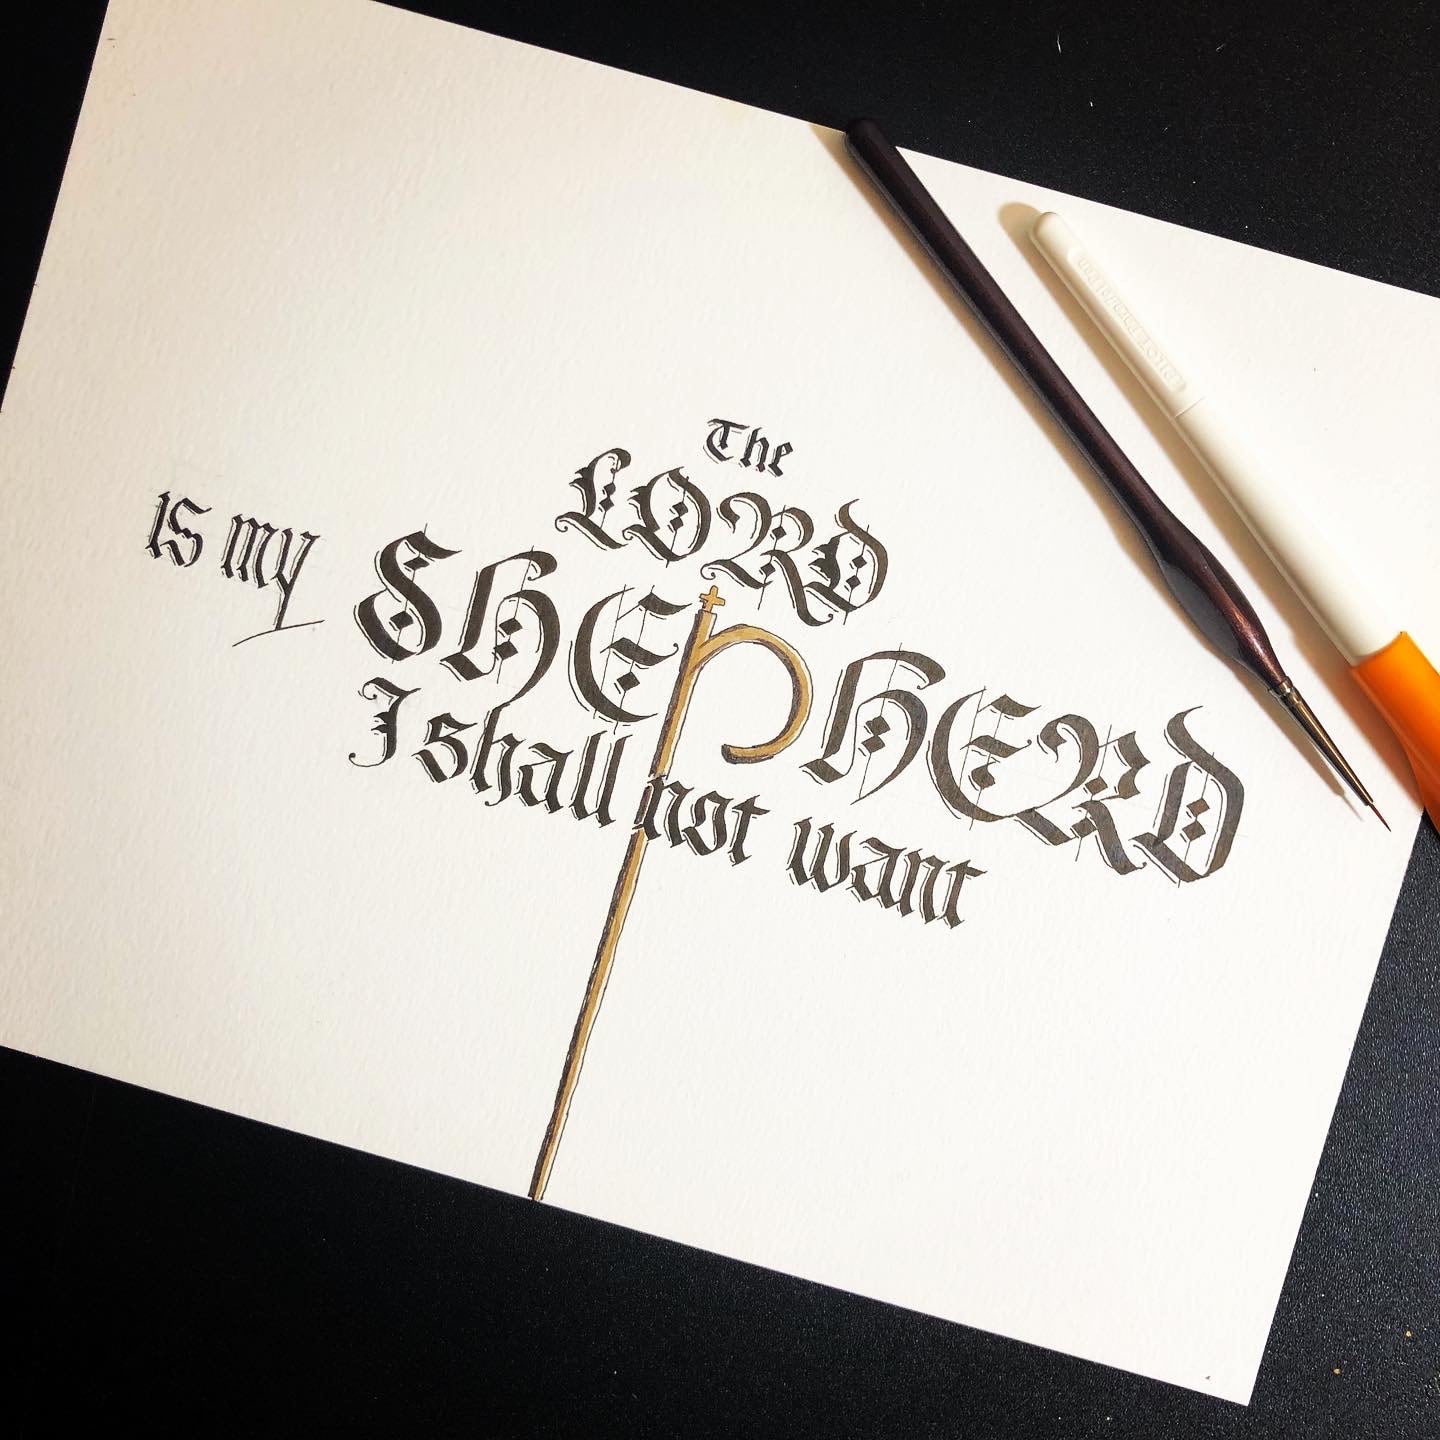 The
LORD
is my SHEPHERD
I shall not want